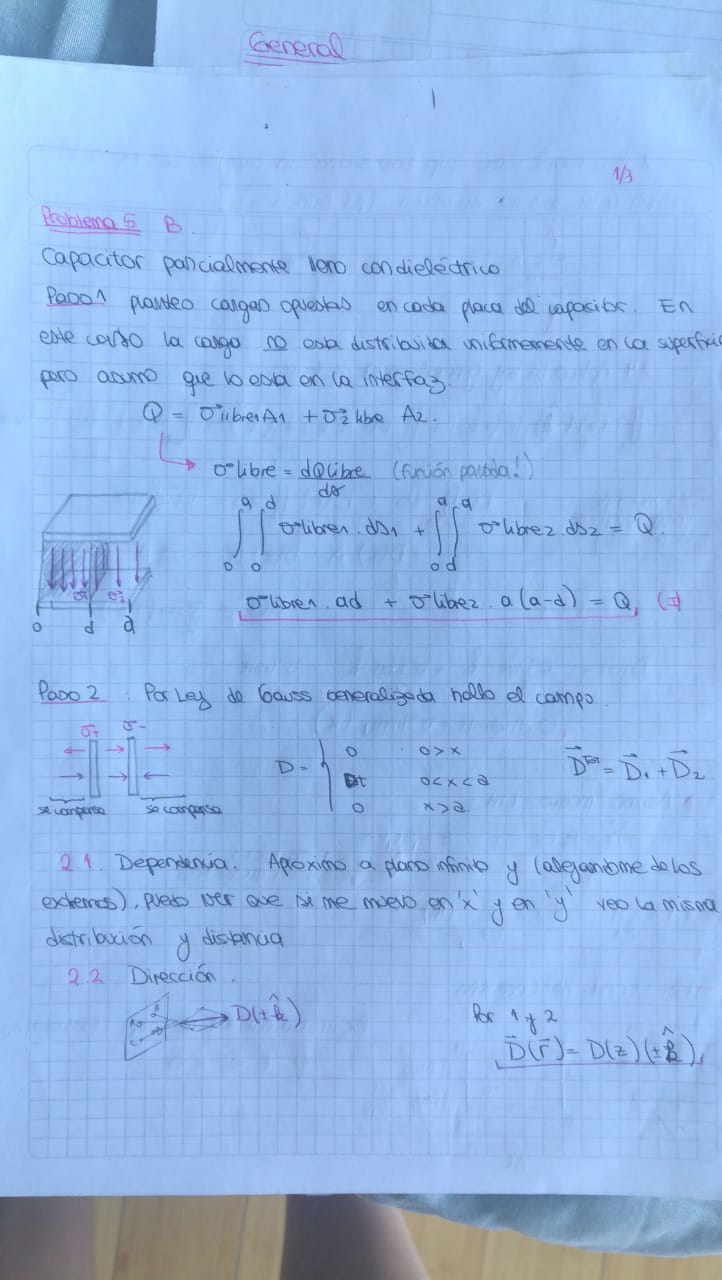 General
1/3
Problema 5 B.
Capacitor parcialmente lleno con dieléctrico
Paso 1 planteo cargas opuestas en cada placa del capacitor. En
este caso la carga no esta distribuida uniformemente en la superficie
pero asumo que lo esta en la interfaz.
Q = σ libre1 A1 + σ2 libre A2.
σ libre = dQlibre/ds (función partida!)
∫₀ᵃ ∫₀ᵈ σ libre1 . ds1 + ∫₀ᵃ ∫_dᵃ σ libre2 ds2 = Q.
σ1 σ2
σ libre1 . ad + σ libre2 . a(a-d) = Q, (I)
0 d a
Paso 2 Por Ley de Gauss generalizada hallo el campo.
σ+ σ-
D = { 0 0>x
t 0<x<a
0 x>a
D⃗ᵀᵒᵗ = D⃗1 + D⃗2
se compensa se compensa
2.1. Dependencia. Aproximo a plano infinito y (alejandome de los
extremos), puedo ver que si me muevo en 'x' y en 'y' veo la misma
distribución y distancia
2.2 Dirección.
D(±k̂)
Por 1 y 2
D̄(r̄) = D(z)(±k̂),